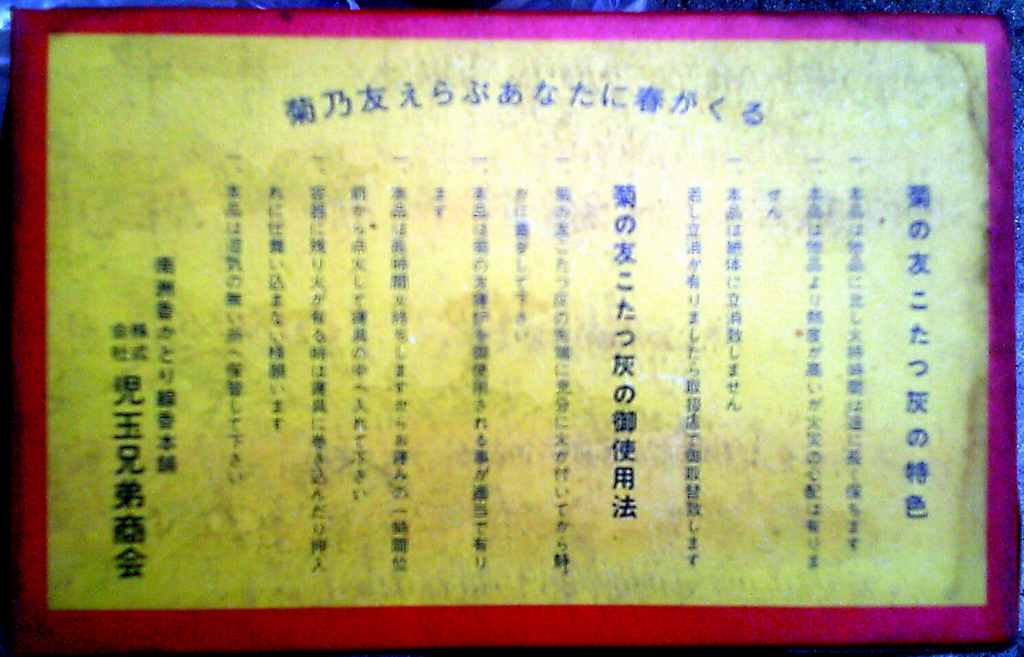 菊乃友えらぶあなたに春がくる
菊の友こたつ灰の特色
一、本品は他品に比し火持時間は遥に長く保ちます
一、本品は他品より熱度が高いが火災の心配は有りま
せん
一、本品は絶体に立消致しません
若し立消が有りましたら取扱店で御取替致します
菊の友こたつ灰の御使用法
一、菊の友こたつ灰の先端に充分に火が付いてから
下さい
一、本品は菊の友 を御使用される事が適当で有り
ます
一、本品は長時間火持をしますからお休みの一時間位
前から点火して寝具の中へ入れて下さい
一、容器に残り火が有る時は寝具に巻き込んだり押入
れに仕舞い込まない様願います
一、本品は湿気の無い所へ保管して下さい
南洲香かとり線香本舗
株式会社 児玉兄弟商会